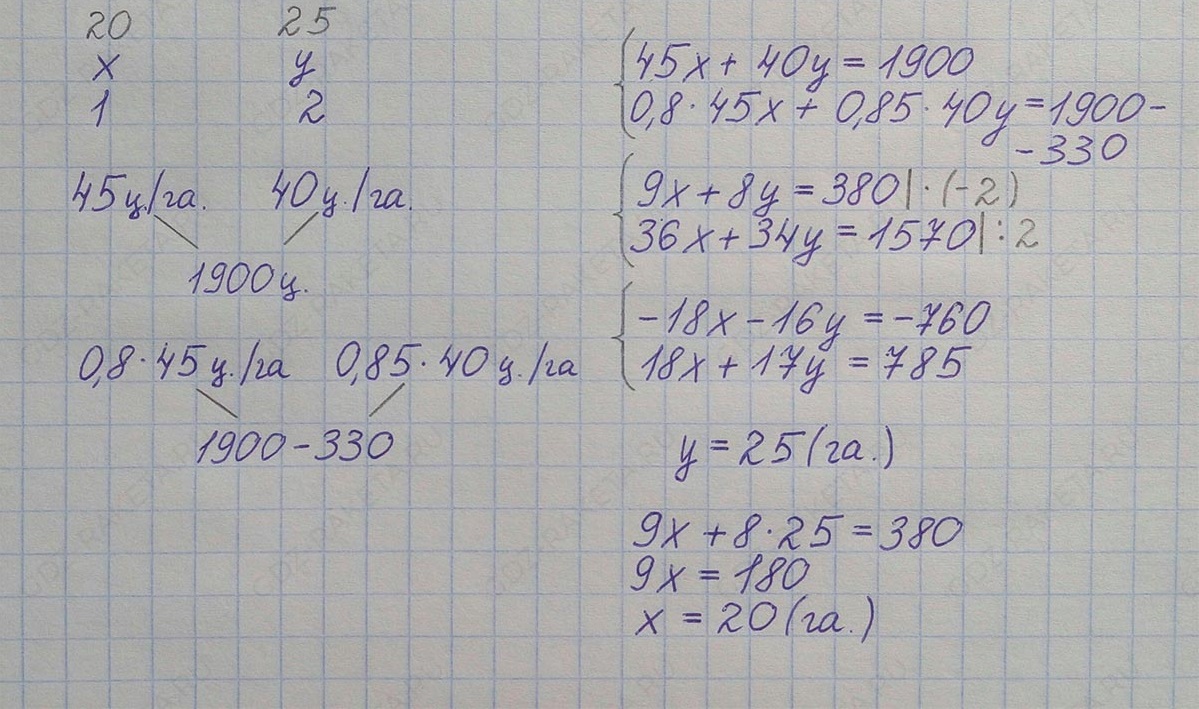 20 25
x y
1 2
45ц/га. 40ц./га.
1900ц.
0,8·45ц./га 0,85·40ц./га
1900-330
45x+40y=1900
0,8·45x+0,85·40y=1900-
-330
9x+8y=380|·(-2)
36x+34y=1570|:2
-18x-16y=-760
18x+17y=785
y=25(га.)
9x+8·25=380
9x=180
x=20(га.)